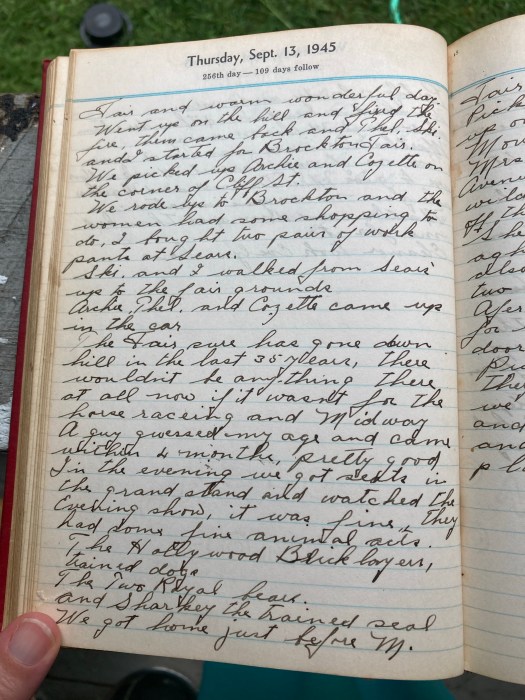 Thursday, Sept. 13, 1945
256th day — 109 days follow
Fair and warm wonderful day.
Went up on the hill and fixed the
fire, then came back and Thel, Ski.
and I started for Brockton Fair.
We picked up Archie and Cozette on
the corner of Cliff St.
We rode up to Brockton and the
women had some shopping to
do, I bought two pair of work
pants at Sears.
Ski, and I walked from Sears
up to the fair grounds
Archie, Thel. and Cozette came up
in the car
The Fair, sure has gone down
hill in the last 35 years, there
wouldn't be anything there
at all now if it wasn't for the
horse raceing and Midway
A guy guessed my age and came
within 4 months, pretty good
In the evening we got seats in
the grand stand and watched the
Evening show, it was fine, they
had some fine animal acts.
The Hollywood Bricklayers,
trained dogs
The Two Royal bears.
and Sharkey the trained seal
We got home just before M.
Fair
Pick
up o
Mou
Mrs
Aven
wild
of th
She
ag
also
two
After
for
door
the
we
and
and
pl